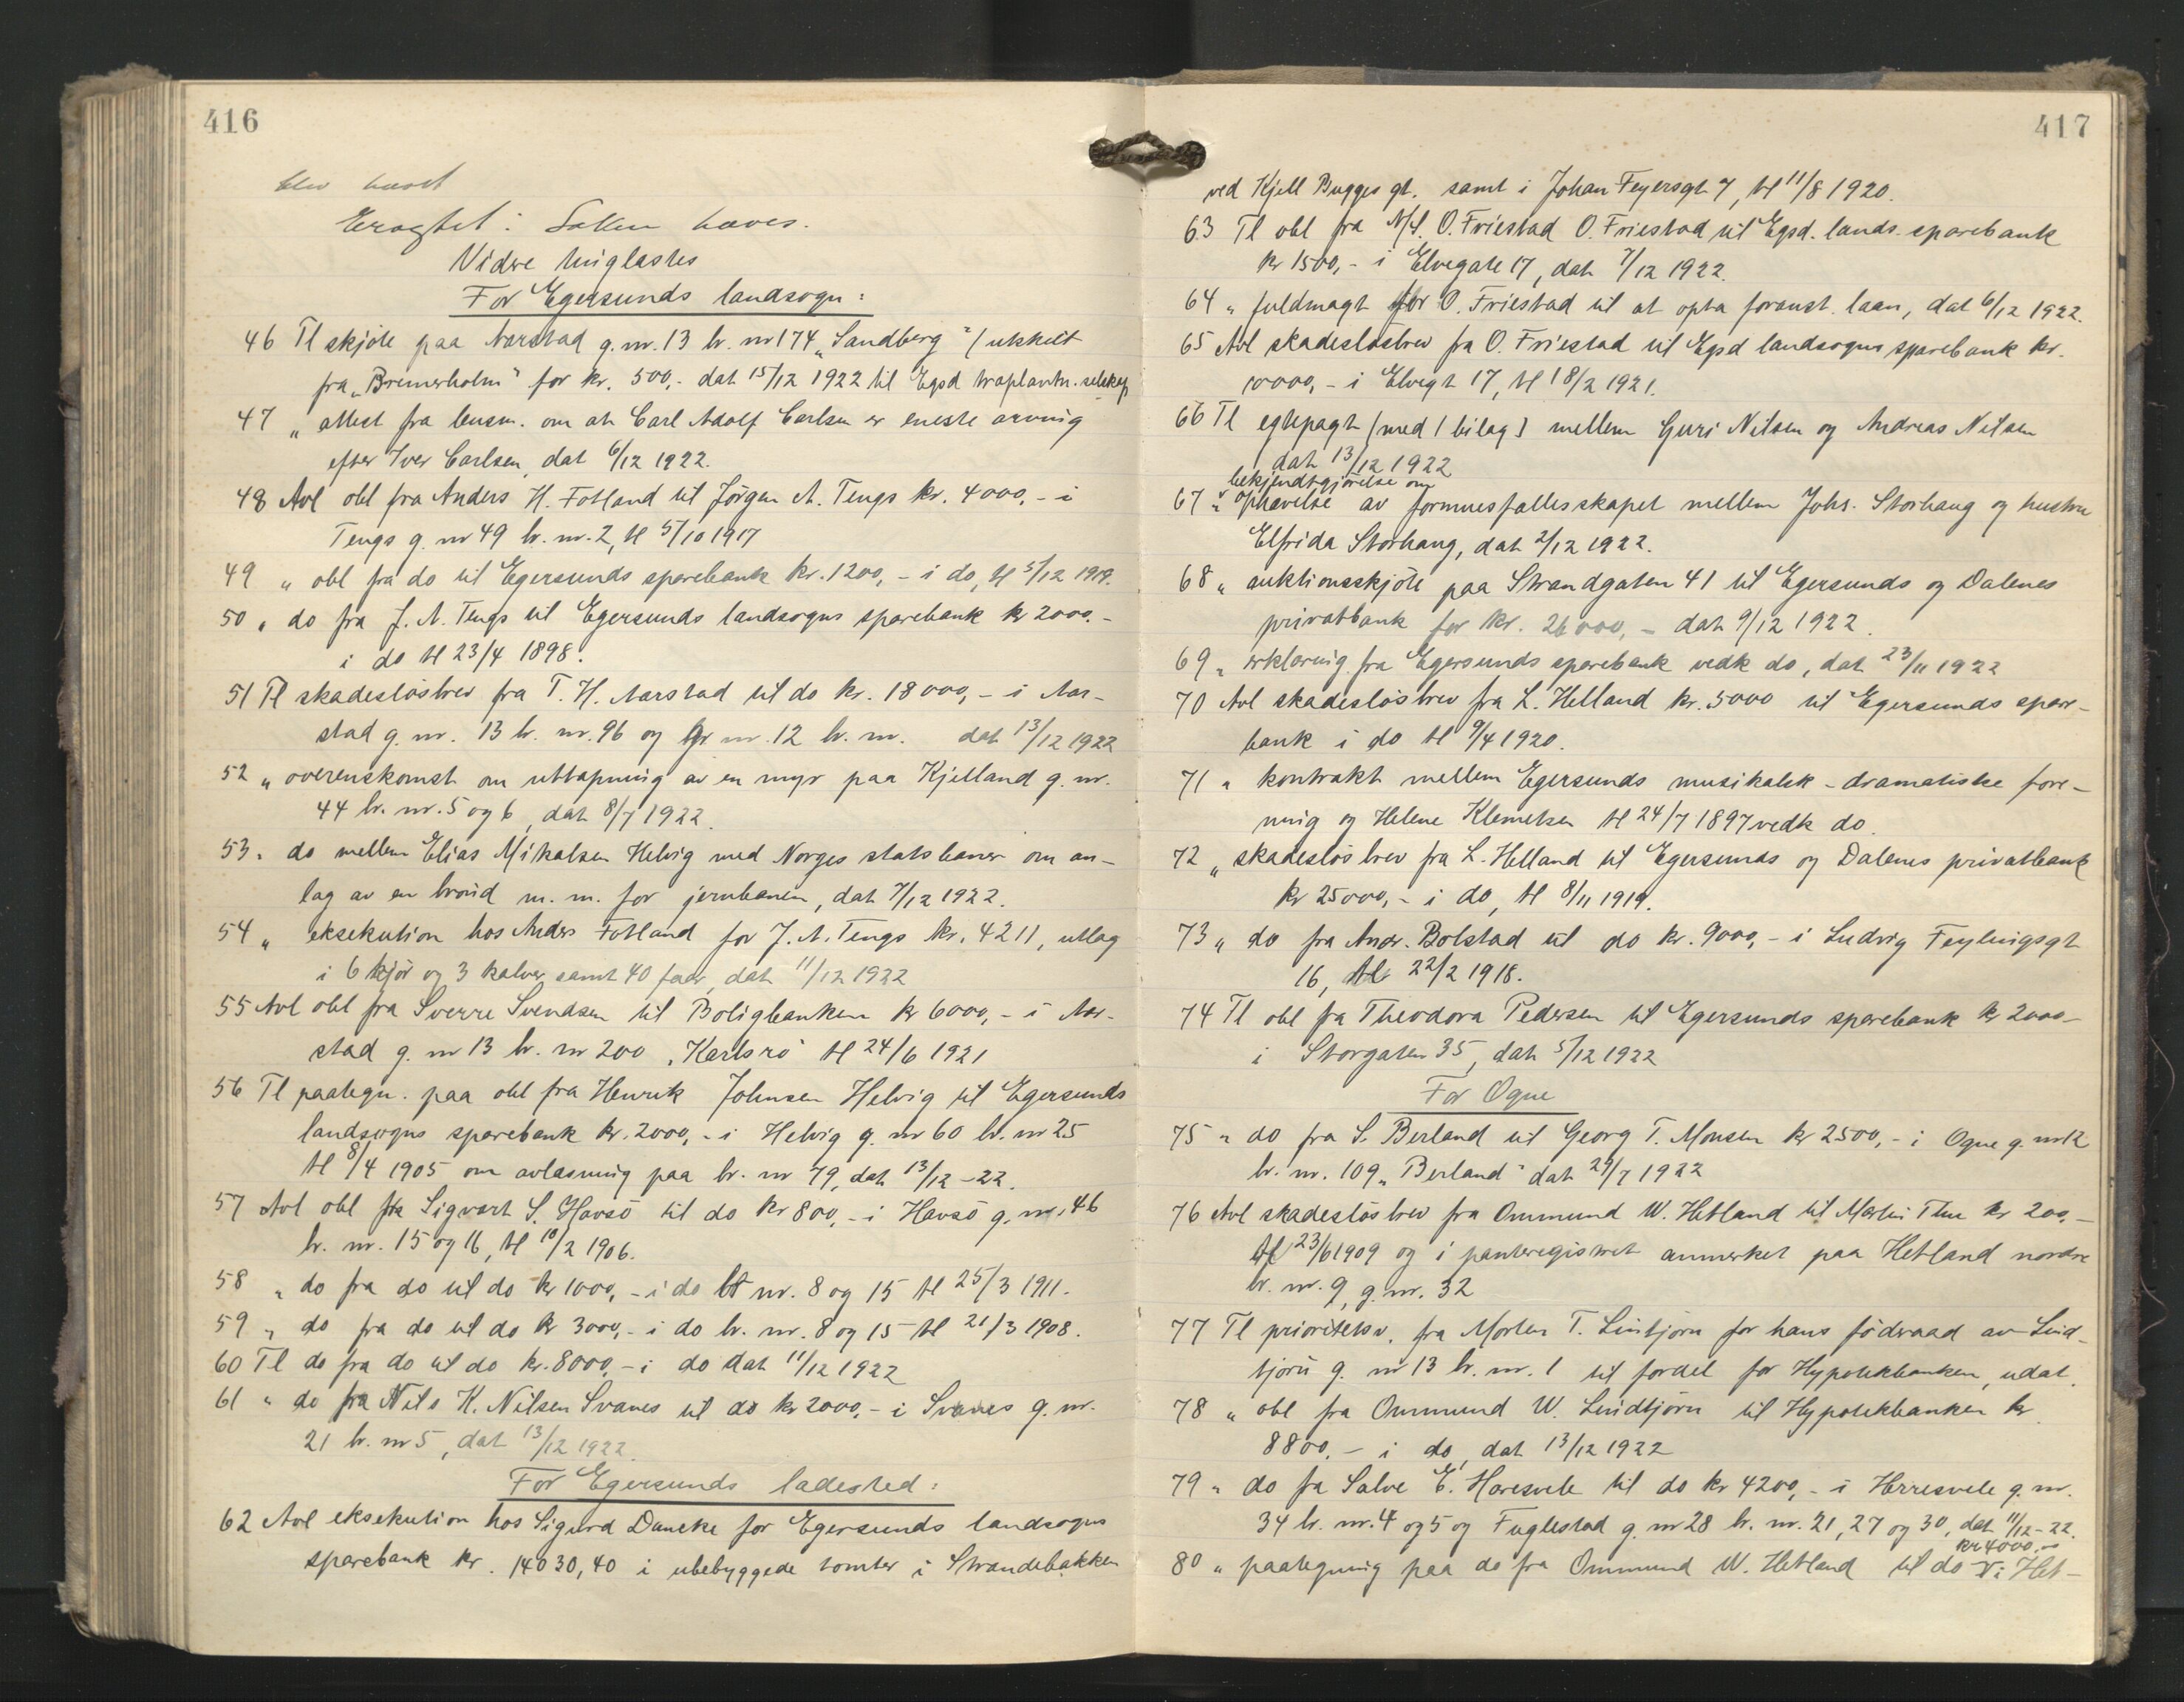 416
blev hævet
Eragtet: Saken hæves.
Videre tinglæstes
For Egersunds landsogn:
46 Tl skjöte paa Aarstad g. nr. 13 br. nr 174 „Sandberg" (utskilt
fra „Bremerholm" for kr. 500,- dat 15/12 1922 til Egsd træplantn. selskap
47 „ attest fra lensm. om at Carl Adolf Carlsen er eneste arving
efter Iver Carlsen, dat 6/12 1922.
48 Avl obl fra Anders H. Fotland til Jörgen A. Tengs kr. 4000,- i
Tengs g. nr 49 br. nr. 2, tl 5/10 1917
49 „ obl fra do til Egersunds sparebank kr. 1200,- i do, tl 5/12 1919.
50 „ do fra J. A. Tengs til Egersunds landsogns sparebank kr 2000.-
i do tl 23/4 1898.
51 Tl skadeslösbrev fra T. H. Aarstad til do kr. 18000,- i Aar-
stad g. nr. 13 br. nr. 96 og gr nr. 12 br. nr. dat 13/12 1922
52 „ overenskomst om uttapning av en myr paa Kjelland g. nr.
44 br. nr. 5 og 6, dat 8/7 1922.
53 „ do mellem Elias Mikalsen Helvig med Norges statsbaner om an-
læg av en brönd m. m. for jernbanen, dat 7/12 1922.
54 „ eksekution hos Anders Fotland for J. A. Tengs kr. 4211, utlæg
i 6 kjör og 3 kalver samt 40 faar, dat 11/12 1922
55 Avl obl fra Sverre Svendsen til Boligbanken kr 6000,- i Aar-
stad g. nr 13 br. nr 200 „Karlsro" tl 24/6 1921
56 Tl paategn. paa obl fra Henrik Johnsen Helvig til Egersunds
landsogns sparebank kr. 2000,- i Helvig g. nr 60 br. nr 25
tl 8/4 1905 om avlæsning paa br. nr 79, dat 13/12 -22.
57 Avl obl fra Sigvart S. Havsö til do kr 800,- i Havsö g. nr. 46
br. nr. 15 og 16, tl 10/2 1906.
58 „ do fra do til do kr 1000,- i do br nr. 8 og 15 tl 25/3 1911.
59 „ do fra do til do kr 3000,- i do br. nr. 8 og 15 tl 21/3 1908.
60 Tl do fra do til do kr. 8000,- i do dat 11/12 1922
61 „ do fra Nils K. Nilsen Svanes til do kr 2000,- i Svanes g. nr.
21 br. nr 5, dat 13/12 1922.
For Egersunds ladested:
62 Avl eksekution hos Sigurd Dancke for Egersunds landsogns
sparebank kr. 14030,40 i ubebyggede tomter i Strandebakken
417
ved Kjell Bugges gt. samt i Johan Feyersgt 7, tl 11/8 1920.
63 Tl obl fra O. Friestad O. Friestad til Egsd. lands. sparebank
kr 1500,- i Elvegate 17, dat 7/12 1922.
64 „ fuldmagt for O. Friestad til at opta foranst. laan, dat 6/12 1922.
65 Avl skadeslösbrev fra O. Friestad til Egsd landsogns sparebank kr.
10000,- i Elvegt 17, tl 18/2 1921.
66 Tl egtepagt (med 1 bilag) mellem Guri Nilsen og Andreas Nilsen
dat 13/12 1922
bekjendtgjörelse om
67 „ ophævelse av formuesfællesskapet mellem Johs. Storhaug og hustru
Elfrida Storhaug, dat 2/12 1922.
68 „ auktionsskjöte paa Strandgaten 41 til Egersunds og Dalenes
privatbank for kr. 26000,- dat 9/12 1922.
69 „ erklæring fra Egersunds sparebank vedk do, dat 23/11 1922
70 Avl skadeslösbrev fra L. Helland kr. 5000 til Egersunds spare-
bank i do tl 9/4 1920.
71 „ kontrakt mellem Egersunds musikalsk-dramatiske fore-
ning og Helene Klemetsen tl 24/7 1897 vedk do.
72 „ skadeslösbrev fra L. Helland til Egersunds og Dalenes privatbank
kr 25000,- i do, tl 8/11 1919.
73 „ do fra Andr. Bolstad til do kr. 9000,- i Ludvig Feylingsgt
16, tl 22/2 1918.
74 Tl obl fra Theodora Pedersen til Egersunds sparebank kr 2000-
i Storgaten 35, dat 5/12 1922
For Ogne
75 „ do fra S. Berland til Georg T. Monsen kr 2500,- i Ogne g. nr 12
br. nr. 109 „Berland" dat 29/7 1922
76 Avl skadeslösbrev fra Ommund W. Hetland til Martin Thu kr 200,-
tl 23/6 1909 og i panteregistret anmerket paa Hetland nordre
br. nr. 9, g. nr. 32
77 Tl prioritetsv. fra Morten T. Lintjörn for hans föderaad av Lind-
tjörn g. nr 13 br. nr. 1 til fordel for Hypotekbanken, udat.
78 „ obl fra Ommund W. Lindtjörn til Hypotekbanken kr.
8800,- i do, dat 13/12 1922
79 „ do fra Salve E. Heresvele til do kr 4200,- i Herresvele g. nr.
34 br. nr. 4 og 5 og Fuglestad g. nr 28 br. nr. 21, 27 og 30, dat 11/12 -22.
kr 4000,-
80 „ paategning paa do fra Ommund W. Hetland til do i Het-